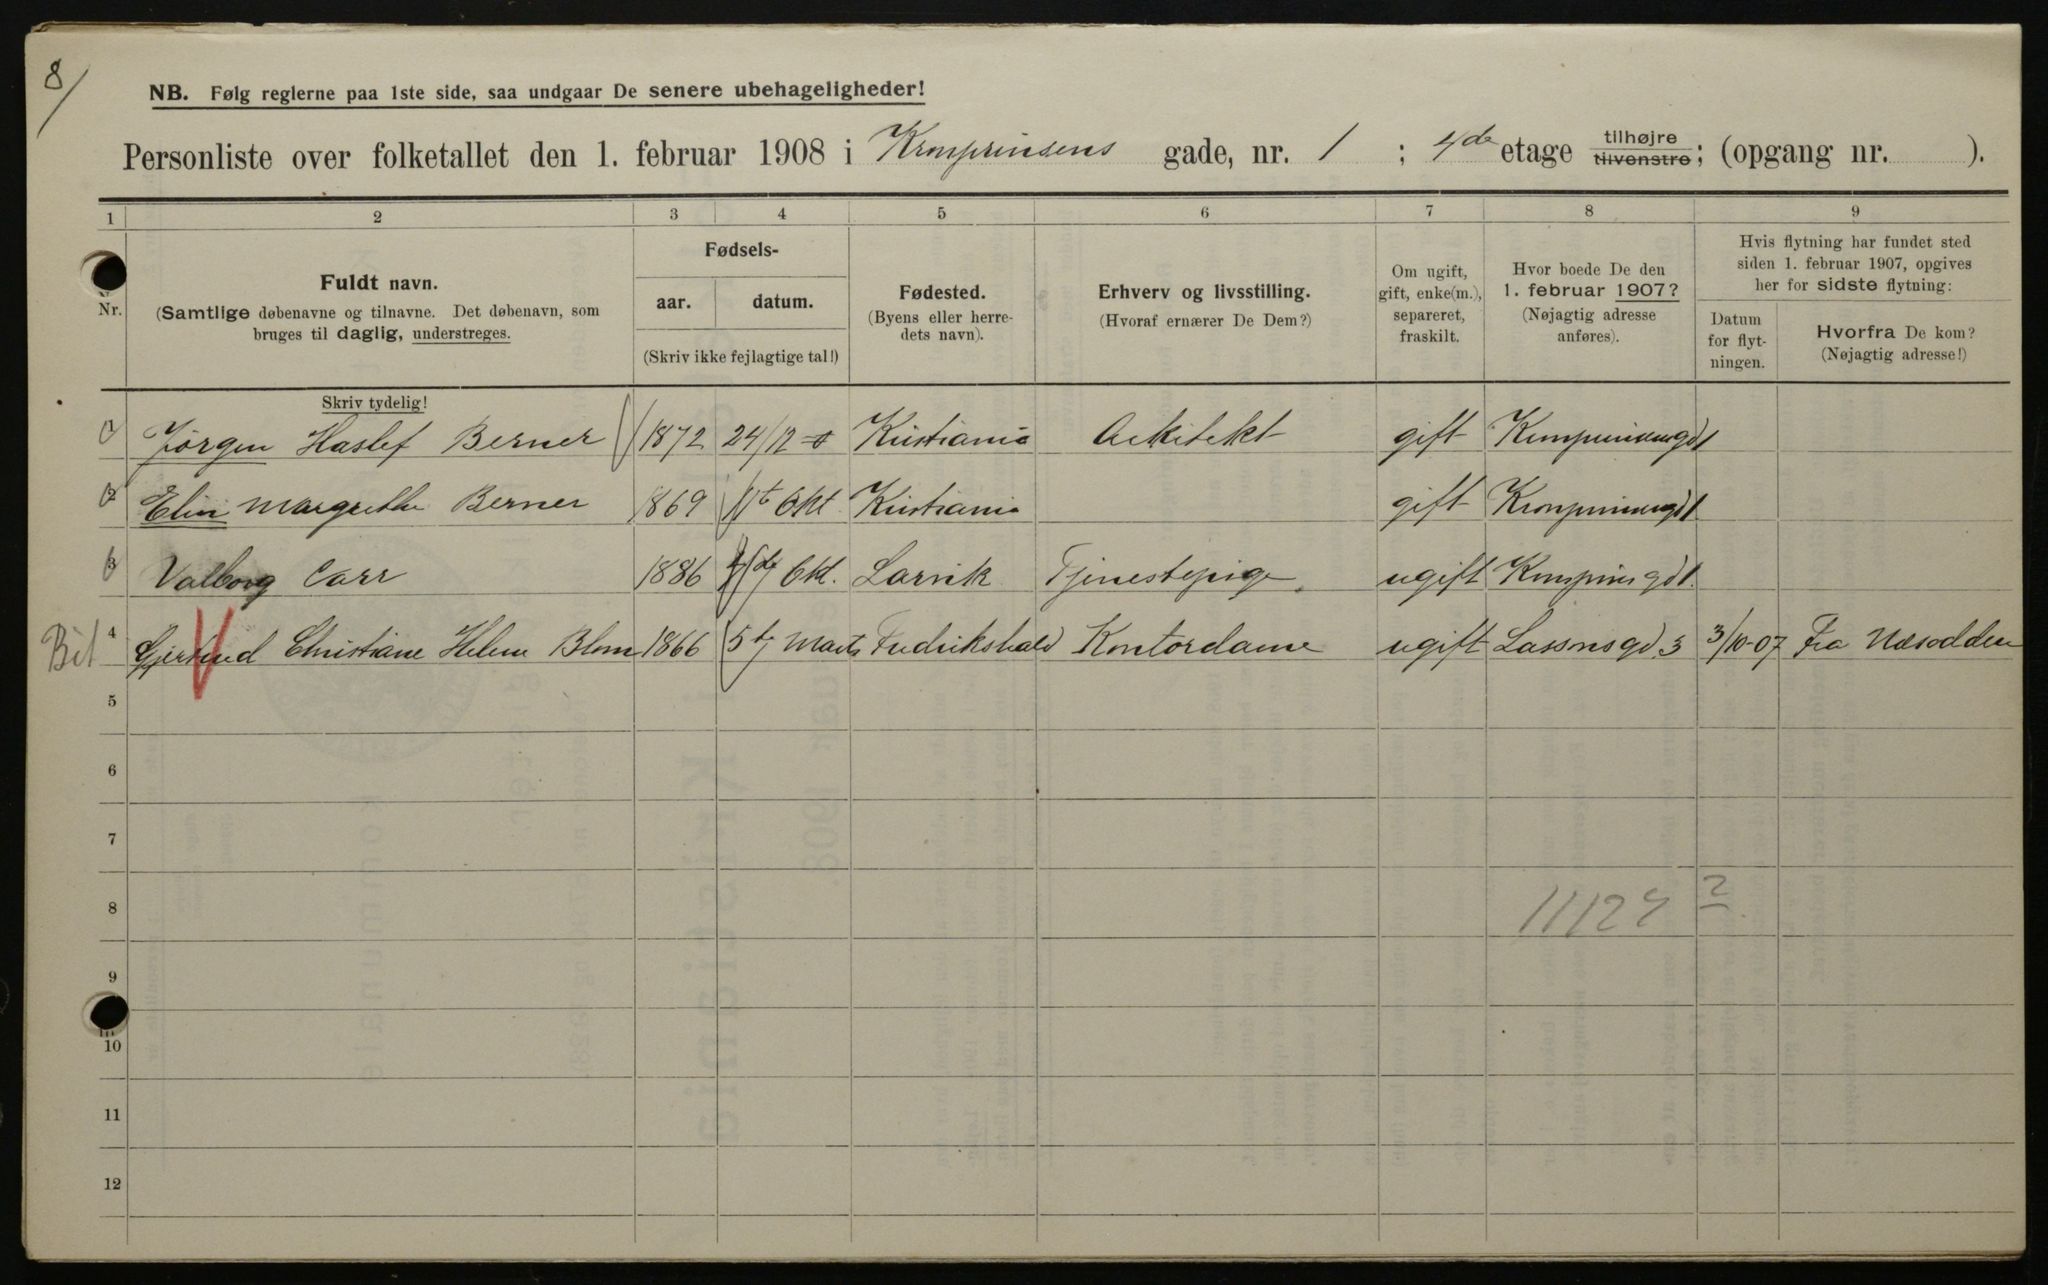 8/
NB. Følg reglerne paa 1ste side, saa undgaar De senere ubehageligheder!
Personliste over folketallet den 1. februar 1908 i Kronprinsens gade, nr. 1 ; 4de etage tilhøjre tilvenstre; (opgang nr. ).
1 2 3 4 5 6 7 8 9
Nr.
Fuldt navn.
(Samtlige døbenavne og tilnavne. Det døbenavn, som
bruges til daglig, understreges.
Skriv tydelig!
Fødsels-
aar. datum.
(Skriv ikke fejlagtige tal!)
Fødested.
(Byens eller herre-
dets navn).
Erhverv og livsstilling.
(Hvoraf ernærer De Dem?)
Om ugift,
gift, enke(m.),
separeret,
fraskilt.
Hvor boede De den
1. februar 1907?
(Nøjagtig adresse
anføres).
Hvis flytning har fundet sted
siden 1. februar 1907, opgives
her for sidste flytning:
Datum
for flyt-
ningen.
Hvorfra De kom?
(Nøjagtig adresse!)
1 Jørgen Haslef Berner 1872 24/12 Kristiania Arkitekt gift Kronprinsensgd 1
2 Elin Margrethe Berner 1869 Okt Kristiania gift Kronprinsensgd 1
3 Valborg Carr 1886 Okt. Larvik Tjenestepige ugift Kronprinsgd 1.
Bit 4 Gjertrud Christiane Helene Blom 1866 5te Marts Fredrikshald Kontordame ugift Lassonsgd. 3 3/10-07 Fra Næsodden
5
6
7
8 11124 2
9
10
11
12